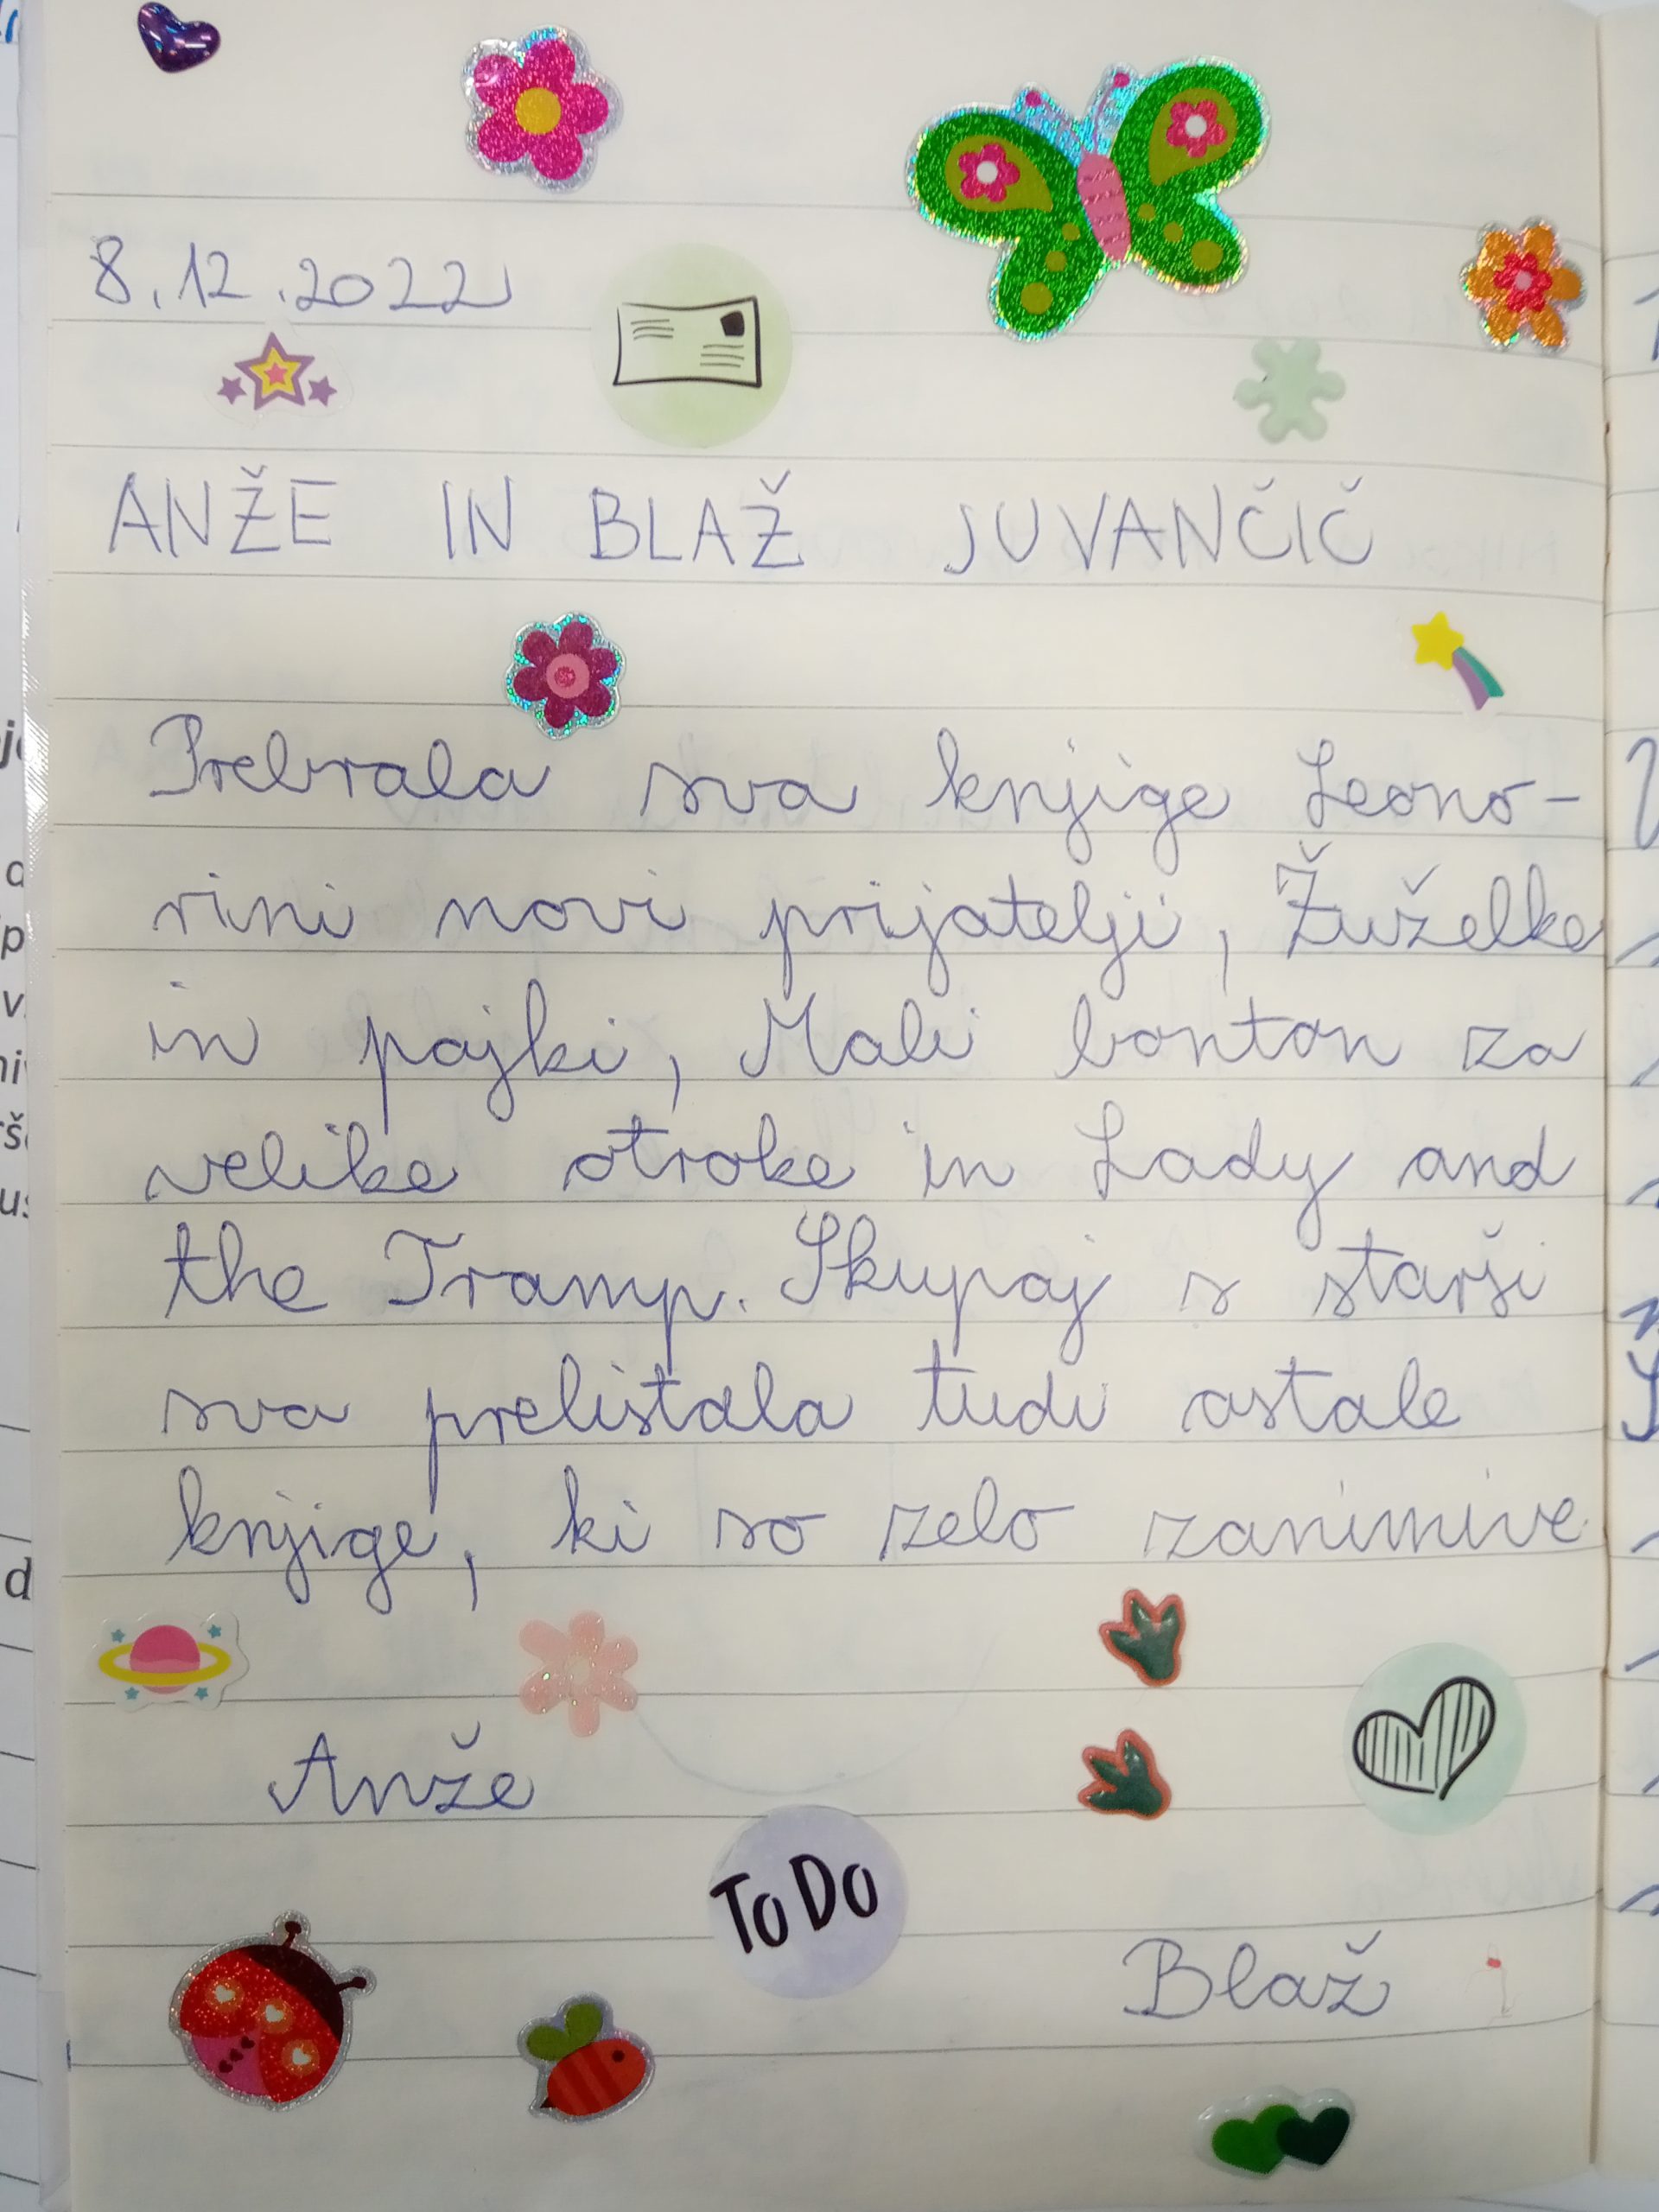 8.12.2022
ANŽE IN BLAŽ JUVANČIČ
Prebrala sva knjige Leono-
rini novi prijatelji, Žuželke
in pajki, Mali bonton za
velike otroke in Lady and
the Tramp. Skupaj s starši
sva prelistala tudi ostale
knjige, ki so zelo zanimive
Anže
TO DO
Blaž